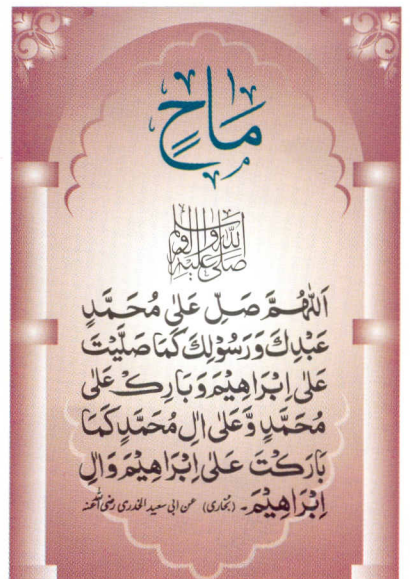 مَاحٍ
صَلَّى اللهُ عَلَيْهِ وَاٰلِهٖ وَسَلَّمَ
اَللّٰهُمَّ صَلِّ عَلٰى مُحَمَّدٍ
عَبْدِكَ وَرَسُوْلِكَ كَمَا صَلَّيْتَ
عَلٰى اِبْرَاهِيْمَ وَبَارِكْ عَلٰى
مُحَمَّدٍ وَّعَلٰى اٰلِ مُحَمَّدٍ كَمَا
بَارَكْتَ عَلٰى اِبْرَاهِيْمَ وَاٰلِ
اِبْرَاهِيْمَ۔ (بخاری) عن ابی سعید الخدری رضی اللہ عنہ۔